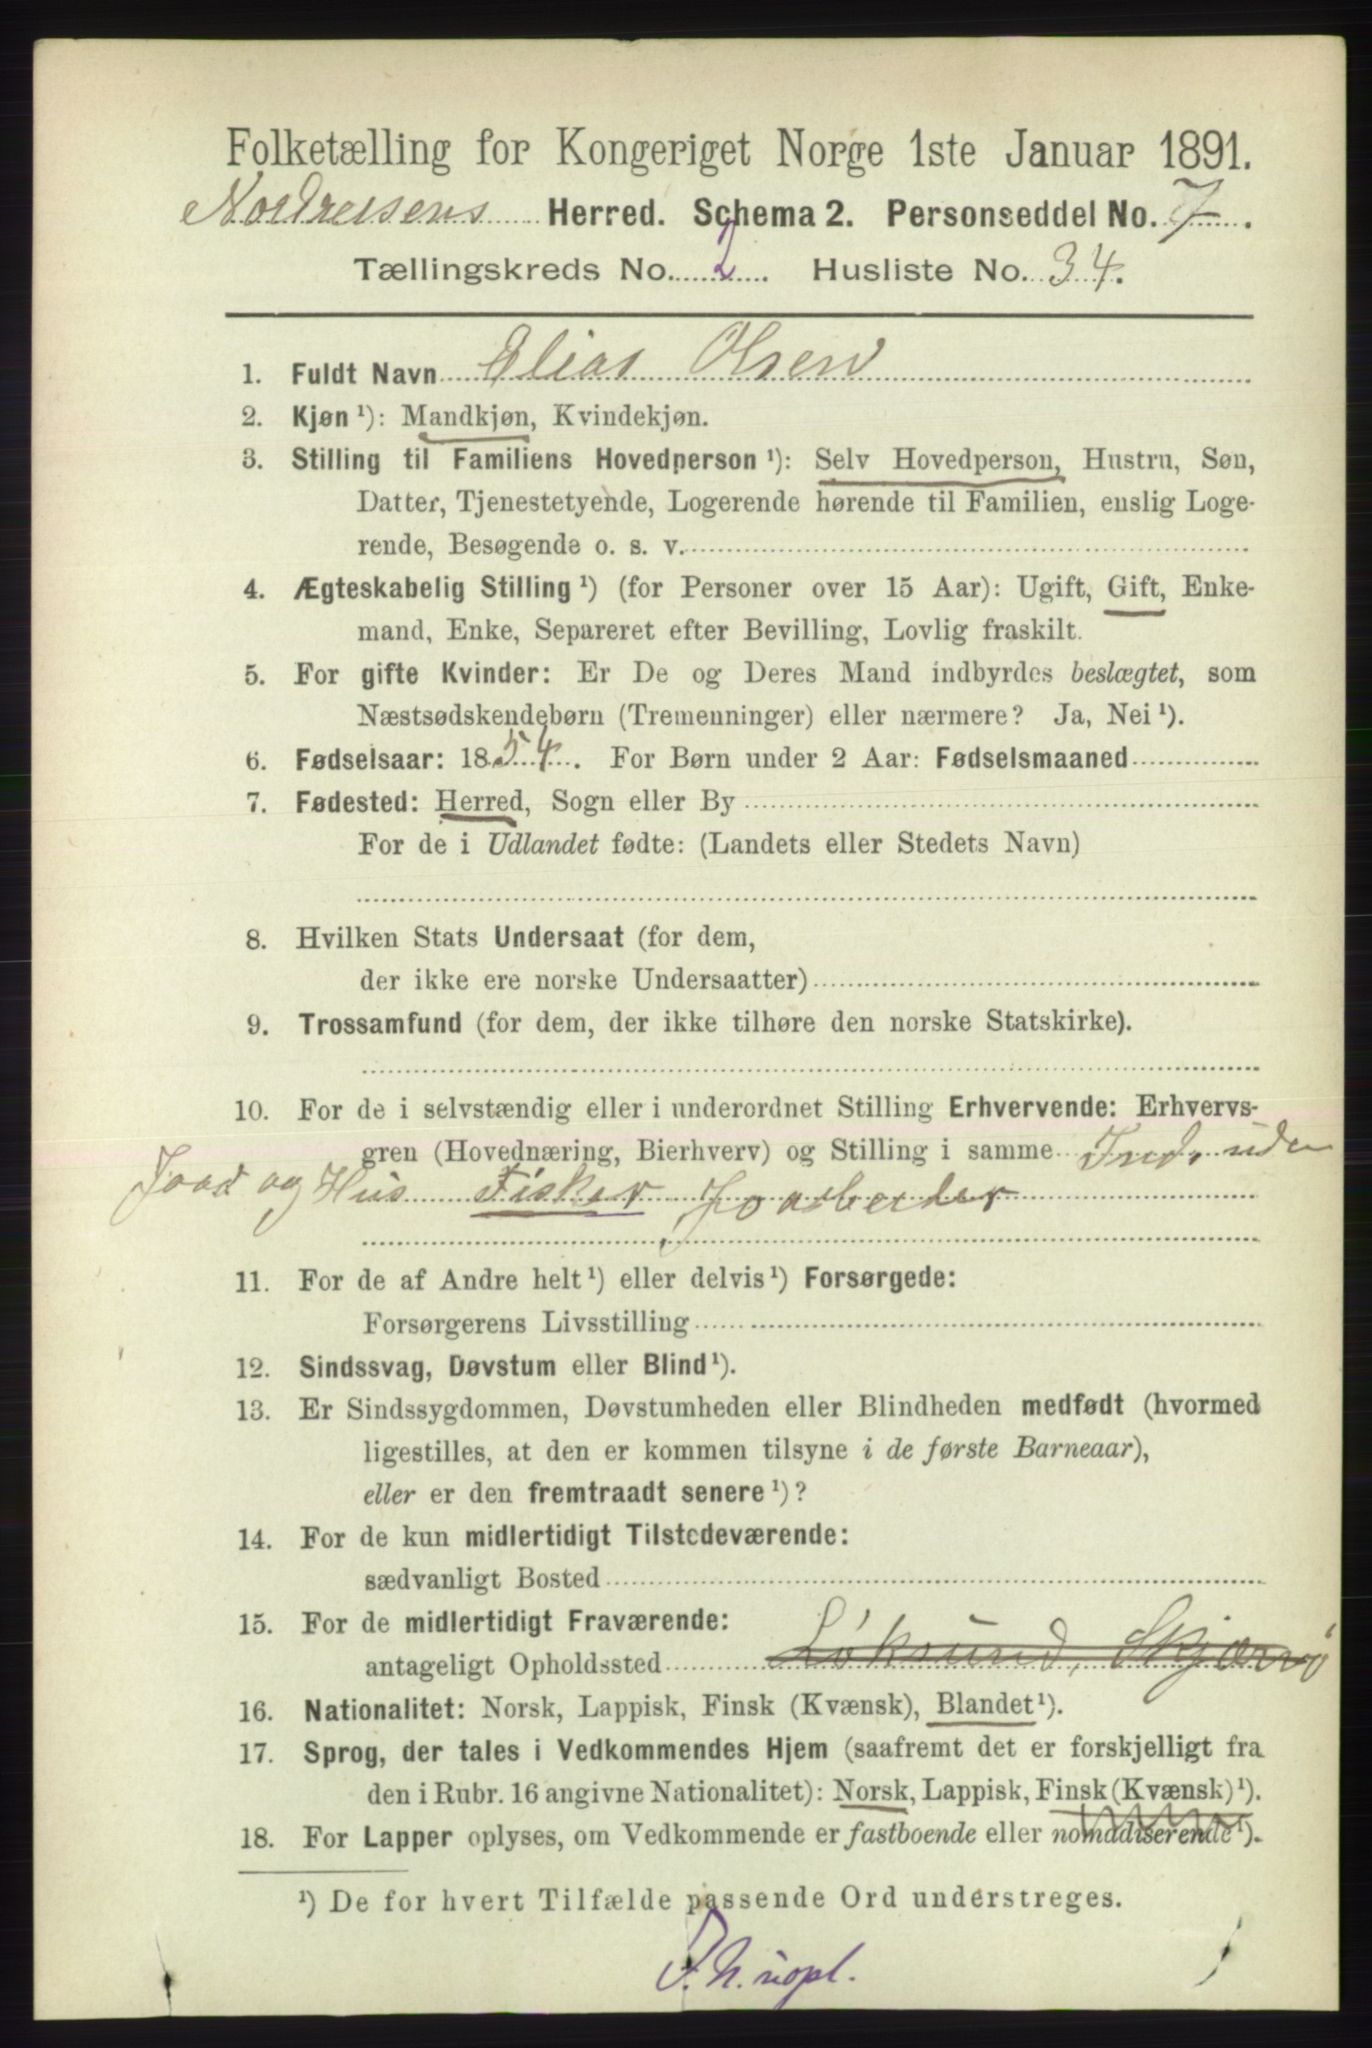 Folketælling for Kongeriget Norge 1ste Januar 1891.
Nordreisens Herred. Schema 2. Personseddel No. 7.
Tællingskreds No. 2. Husliste No. 34.
1. Fuldt Navn Elias Olsen
2. Kjøn ¹): Mandkjøn, Kvindekjøn.
3. Stilling til Familiens Hovedperson ¹): Selv Hovedperson, Hustru, Søn,
Datter, Tjenestetyende, Logerende hørende til Familien, enslig Loge-
rende, Besøgende o. s. v.
4. Ægteskabelig Stilling ¹) (for Personer over 15 Aar): Ugift, Gift, Enke-
mand, Enke, Separeret efter Bevilling, Lovlig fraskilt.
5. For gifte Kvinder: Er De og Deres Mand indbyrdes beslægtet, som
Næstsødskendebørn (Tremenninger) eller nærmere? Ja, Nei ¹).
6. Fødselsaar: 1854. For Børn under 2 Aar: Fødselsmaaned
7. Fødested: Herred, Sogn eller By
For de i Udlandet fødte: (Landets eller Stedets Navn)
8. Hvilken Stats Undersaat (for dem,
der ikke ere norske Undersaatter)
9. Trossamfund (for dem, der ikke tilhøre den norske Statskirke).
10. For de i selvstændig eller i underordnet Stilling Erhvervende: Erhvervs-
gren (Hovednæring, Bierhverv) og Stilling i samme Ind. uden
Jord og Hus Fisker Jo arbeider
11. For de af Andre helt ¹) eller delvis ¹) Forsørgede:
Forsørgerens Livsstilling
12. Sindssvag, Døvstum eller Blind ¹).
13. Er Sindssygdommen, Døvstumheden eller Blindheden medfødt (hvormed
ligestilles, at den er kommen tilsyne i de første Barneaar),
eller er den fremtraadt senere ¹)?
14. For de kun midlertidigt Tilstedeværende:
sædvanligt Bosted
15. For de midlertidigt Fraværende:
antageligt Opholdssted Løksund, Skjærvø
16. Nationalitet: Norsk, Lappisk, Finsk (Kvænsk), Blandet ¹).
17. Sprog, der tales i Vedkommendes Hjem (saafremt det er forskjelligt fra
den i Rubr. 16 angivne Nationalitet): Norsk, Lappisk, Finsk (Kvænsk) ¹).
18. For Lapper oplyses, om Vedkommende er fastboende eller nomadiserende ¹).
¹) De for hvert Tilfælde passende Ord understreges.
F. N. uopl.